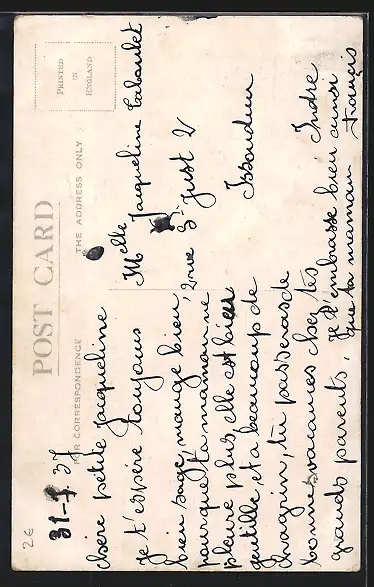 POST CARD
FOR CORRESPONDENCE
THE ADDRESS ONLY
PRINTED
IN
ENGLAND
2€
31-7 37
Chère petite Jacqueline
je t'espère toujours
bien sage, mange bien,
pourque ta maman ne
pleure plus, elle est bien
gentille, et a beaucoup de
chagrin, tu passeras de
bonnes vacances chez tes
grands parents. je t'embrasse bien ainsi
que ta maman François
Melle Jacqueline Cabaulet
2 rue St Just 2
Issoudun
Indre